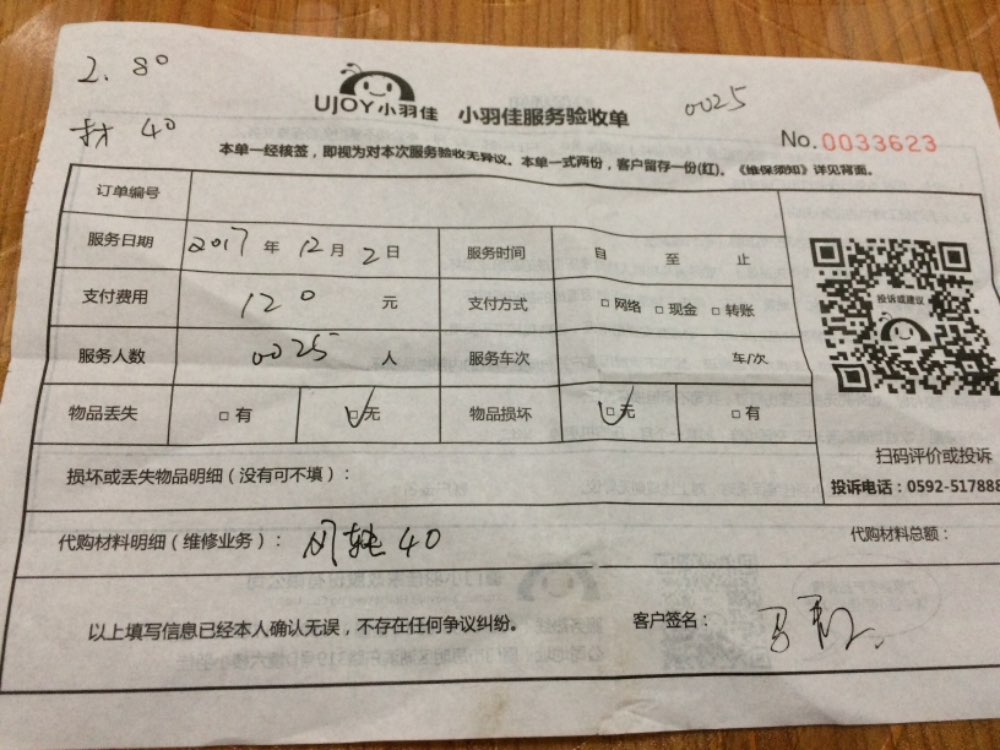 2. 80
UJOY小羽佳 小羽佳服务验收单 0025
材 40
No.0033623
本单一经核签，即视为对本次服务验收无异议。本单一式两份，客户留存一份(红)。《维保须知》详见背面。
订单编号
服务日期 2017年 12月 2日 服务时间 自 至 止
支付费用 120 元 支付方式 □网络 □现金 □转账
投诉或建议
服务人数 0025 人 服务车次 车/次
物品丢失 □有 □无 物品损坏 □无 □有
扫码评价或投诉
损坏或丢失物品明细（没有可不填）：
投诉电话：0592-517888
代购材料明细（维修业务）： 40 代购材料总额：
以上填写信息已经本人确认无误，不存在任何争议纠纷。 客户签名：